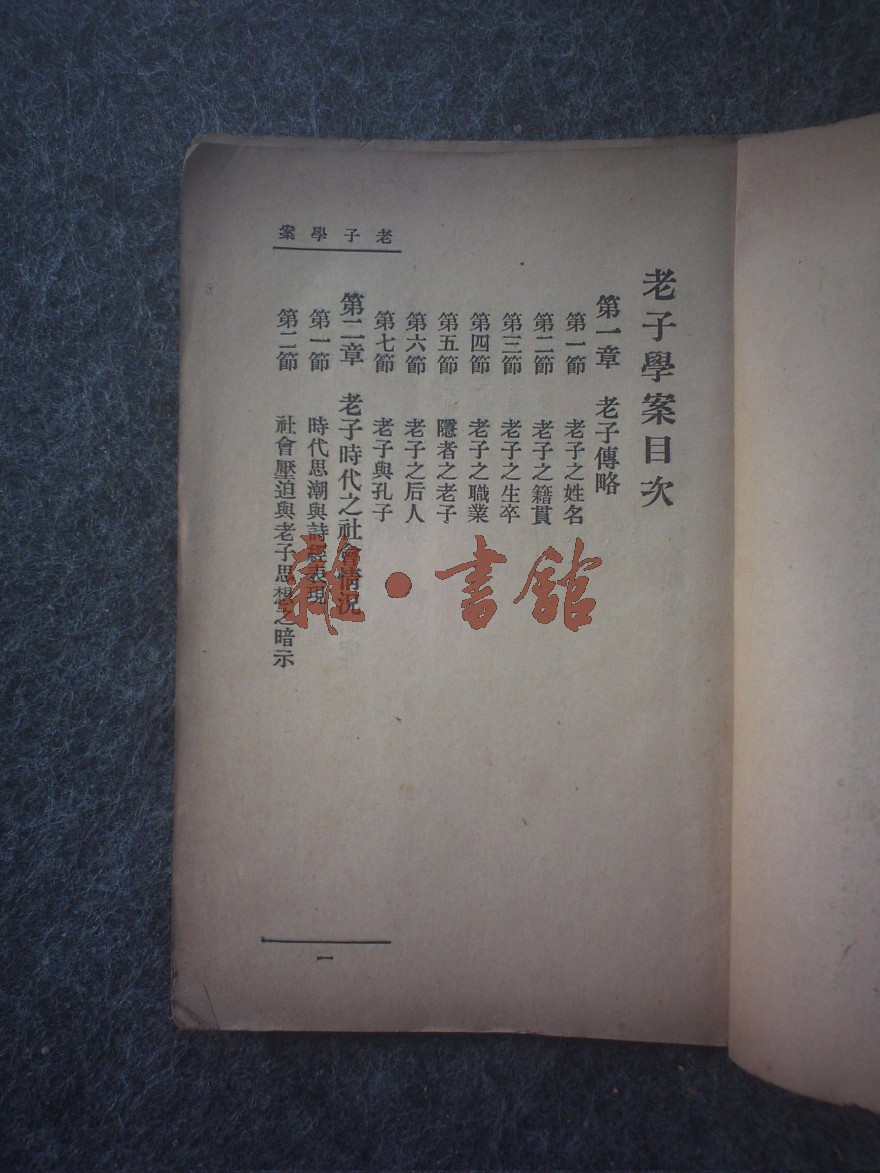 老子學案
老子學案目次
第一章　老子傳略
第一節　老子之姓名
第二節　老子之籍貫
第三節　老子之生卒
第四節　老子之職業
第五節　隱者之老子
第六節　老子之后人
第七節　老子與孔子
第二章　老子時代之社會情况
第一節　時代思潮與詩經表現
第二節　社會壓迫與老子思想之暗示
一
雜·書館